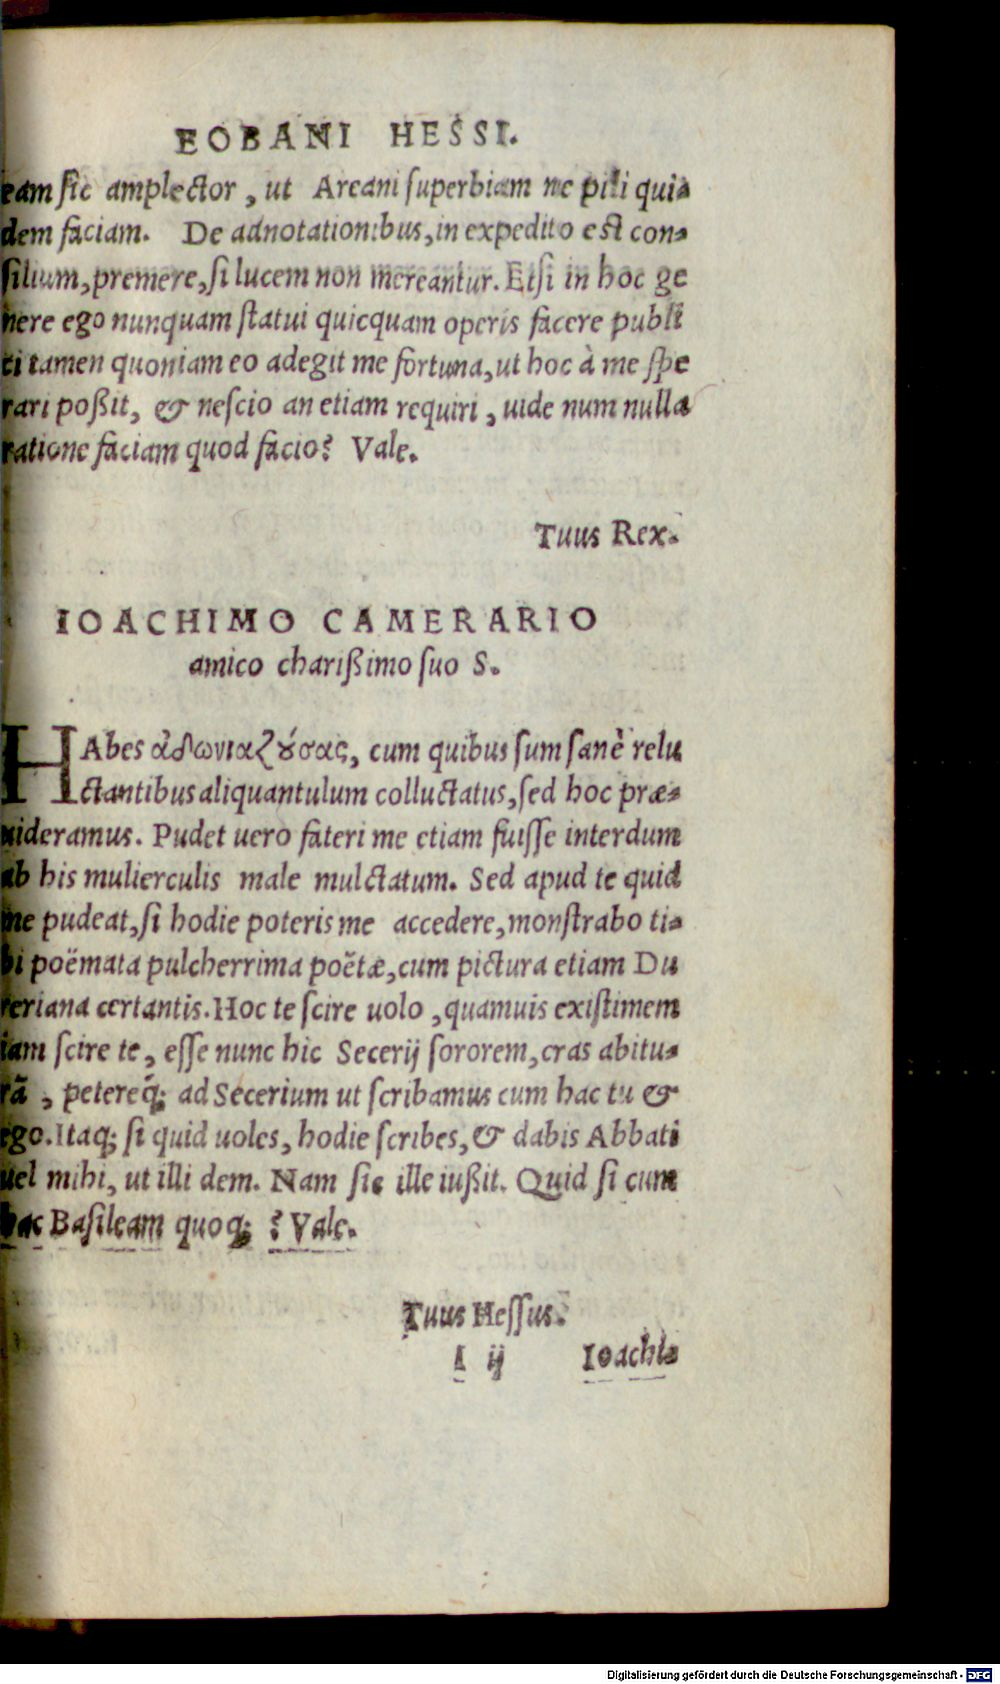 EOBANI HESSI.
eam sic amplector, ut Arcani superbiam ne pili qui-
dem faciam. De adnotationibus, in expedito est con-
silium, premere, si lucem non mereantur. Etsi in hoc ge
nere ego nunquam statui quicquam operis facere publi
ci tamen quoniam eo adegit me fortuna, ut hoc à me spe
rari poßit, & nescio an etiam requiri, uide num nulla
ratione faciam quod facio? Vale.
Tuus Rex.
IOACHIMO CAMERARIO
amico charißimo suo S.
HAbes ἀδωνιαζούσας, cum quibus sum sanè relu
ctantibus aliquantulum colluctatus, sed hoc præ-
uideramus. Pudet uero fateri me etiam fuisse interdum
ab his mulierculis male mulctatum. Sed apud te quid
me pudeat, si hodie poteris me accedere, monstrabo ti-
bi poëmata pulcherrima poëtæ, cum pictura etiam Du
reriana certantis. Hoc te scire uolo, quamuis existimem
iam scire te, esse nunc hic Secerij sororem, cras abitu-
rã, petereq́; ad Secerium ut scribamus cum hac tu &
ego. Itaq; si quid uoles, hodie scribes, & dabis Abbati
uel mihi, ut illi dem. Nam sic ille iußit. Quid si cum
hac Basileam quoq; ? Vale.
Tuus Hessus.
I ij Ioachi-
Digitalisierung gefördert durch die Deutsche Forschungsgemeinschaft - DFG